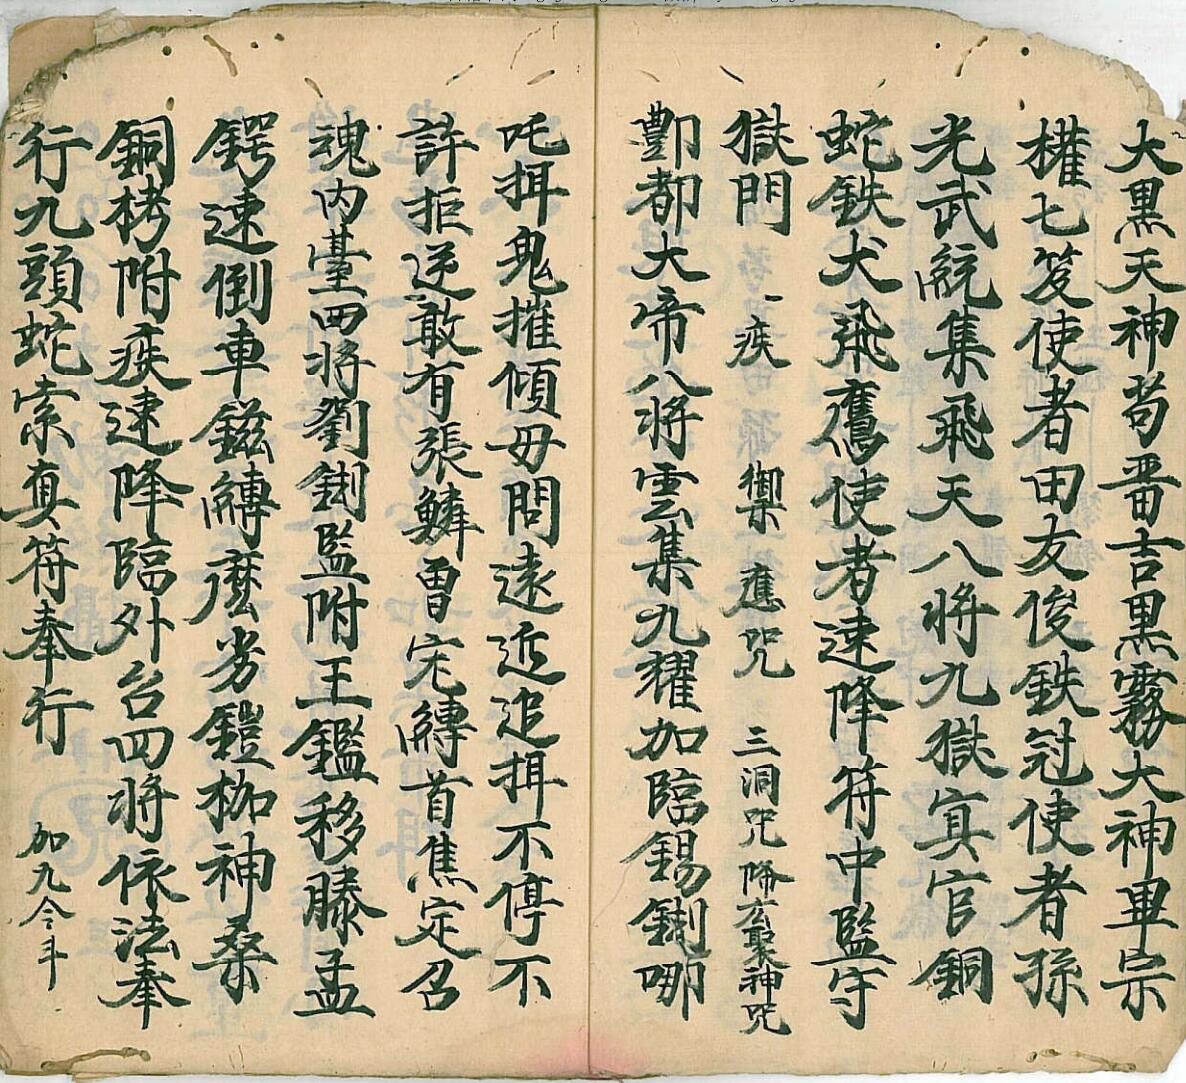 大黒天神苟晋吉黒霧大神畢宗
權七笈使者田友俊鉄冠使者孫
光武統集飛天八將九獄寘官銅
蛇鉄犬飛鷹使者速降符中監守
獄門 疾 禦應咒 三洞咒 降玄聖神咒
酆都大帝八將雲集九耀加臨錫鍘哪
吒挕鬼摧傾毋問遠近追挕不停不
許拒逆敢有張鱗曹宋縛首焦定召
魂内臺四將劉鍘監附王鑑移滕孟
鍔速倒車鎡縛麽劣鎧枷神桑
銅栲附疾速降臨外台四將依法奉
行九頭蛇索真符奉行 加九令斗